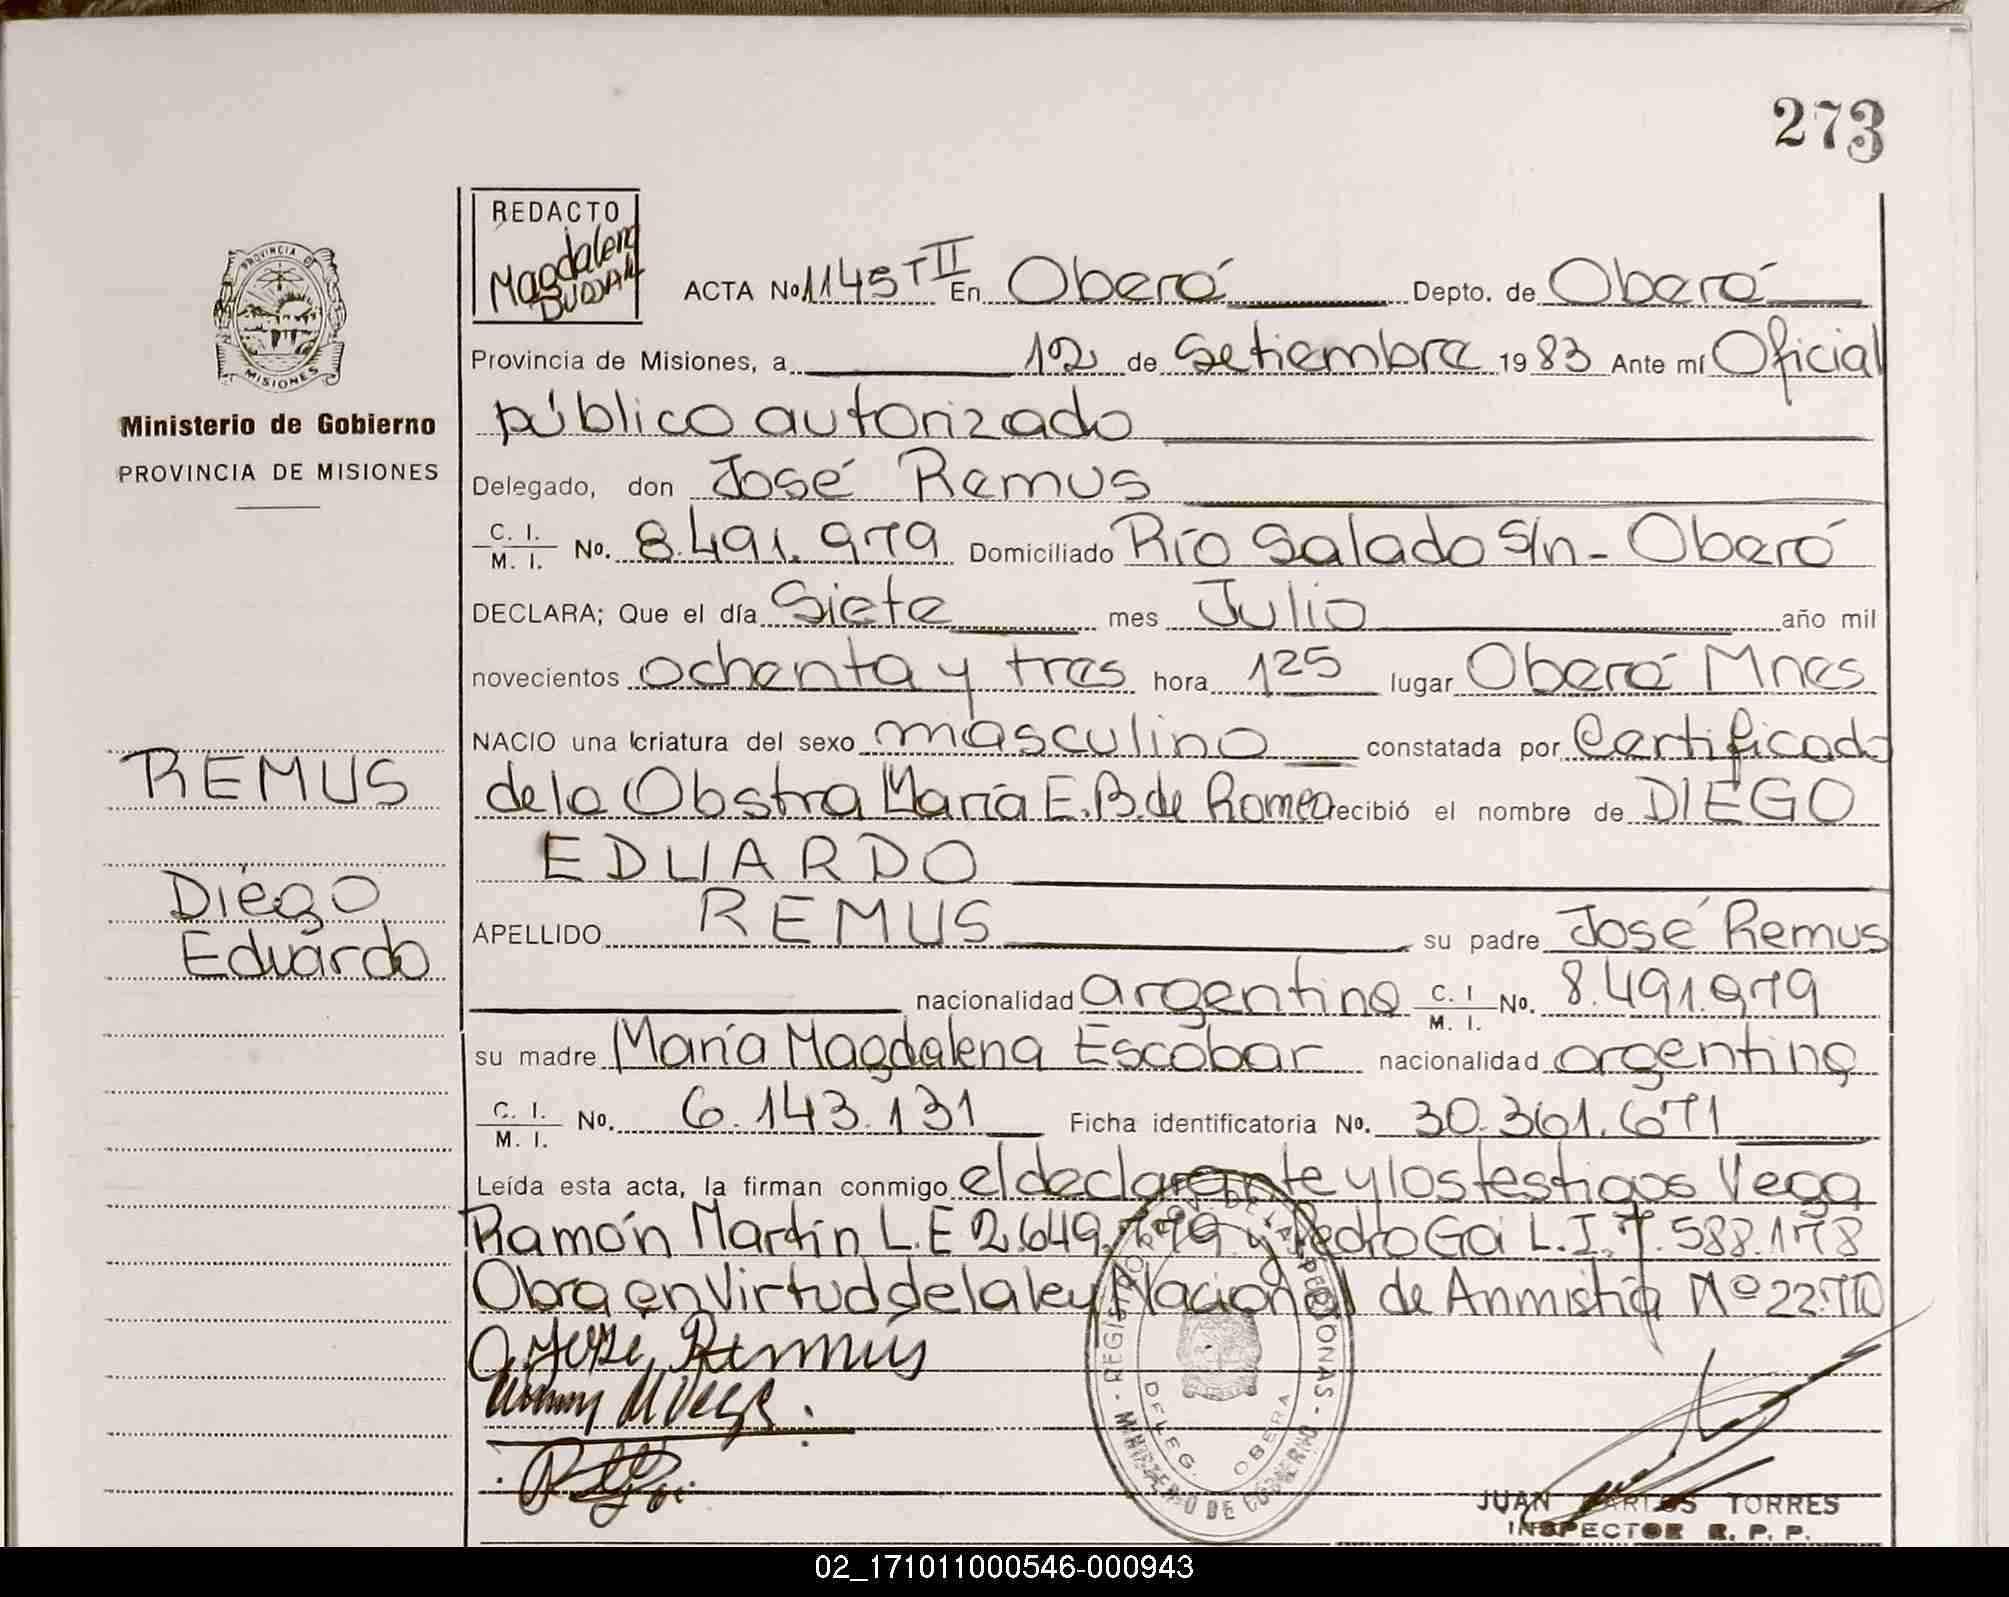 273
REDACTO
Magdalena
ACTA No 1145 T II En Oberá Depto. de Oberá
PROVINCIA DE
MISIONES
Provincia de Misiones, a 12 de Setiembre 1983 Ante mí Oficial
Ministerio de Gobierno
público autorizado
PROVINCIA DE MISIONES
Delegado, don José Remus
C. I.
M. I. No. 8.491.979 Domiciliado Río Salado S/n - Oberá
DECLARA; Que el día Siete mes Julio año mil
novecientos ochenta y tres hora 1 25 lugar Oberá Mnes
NACIO una criatura del sexo masculino constatada por Certificado
REMUS
de la Obstra María E. B. de Romeo recibió el nombre de DIEGO
EDUARDO
Diego
Eduardo
APELLIDO REMUS su padre José Remus
nacionalidad argentino C. I M. I. No. 8.491.979
su madre María Magdalena Escobar nacionalidad argentina
C. I.
M. I. No. 6.143.131 Ficha identificatoria No. 30.361.671
Leída esta acta, la firman conmigo el declarante y los testigos Vega
Ramón Martín L.E 2.649.779 y Pedro Gai L.I. 7.588.178
Obra en Virtud de la ley Nacional de Anmistía Nº 22.710
José Remus
M Vega.
REGISTRO PROV. DE LAS PERSONAS - MINISTERIO DE GOBIERNO
DELEG. OBERA
JUAN CARLOS TORRES
INSPECTOR R. P. P.
02_171011000546-000943